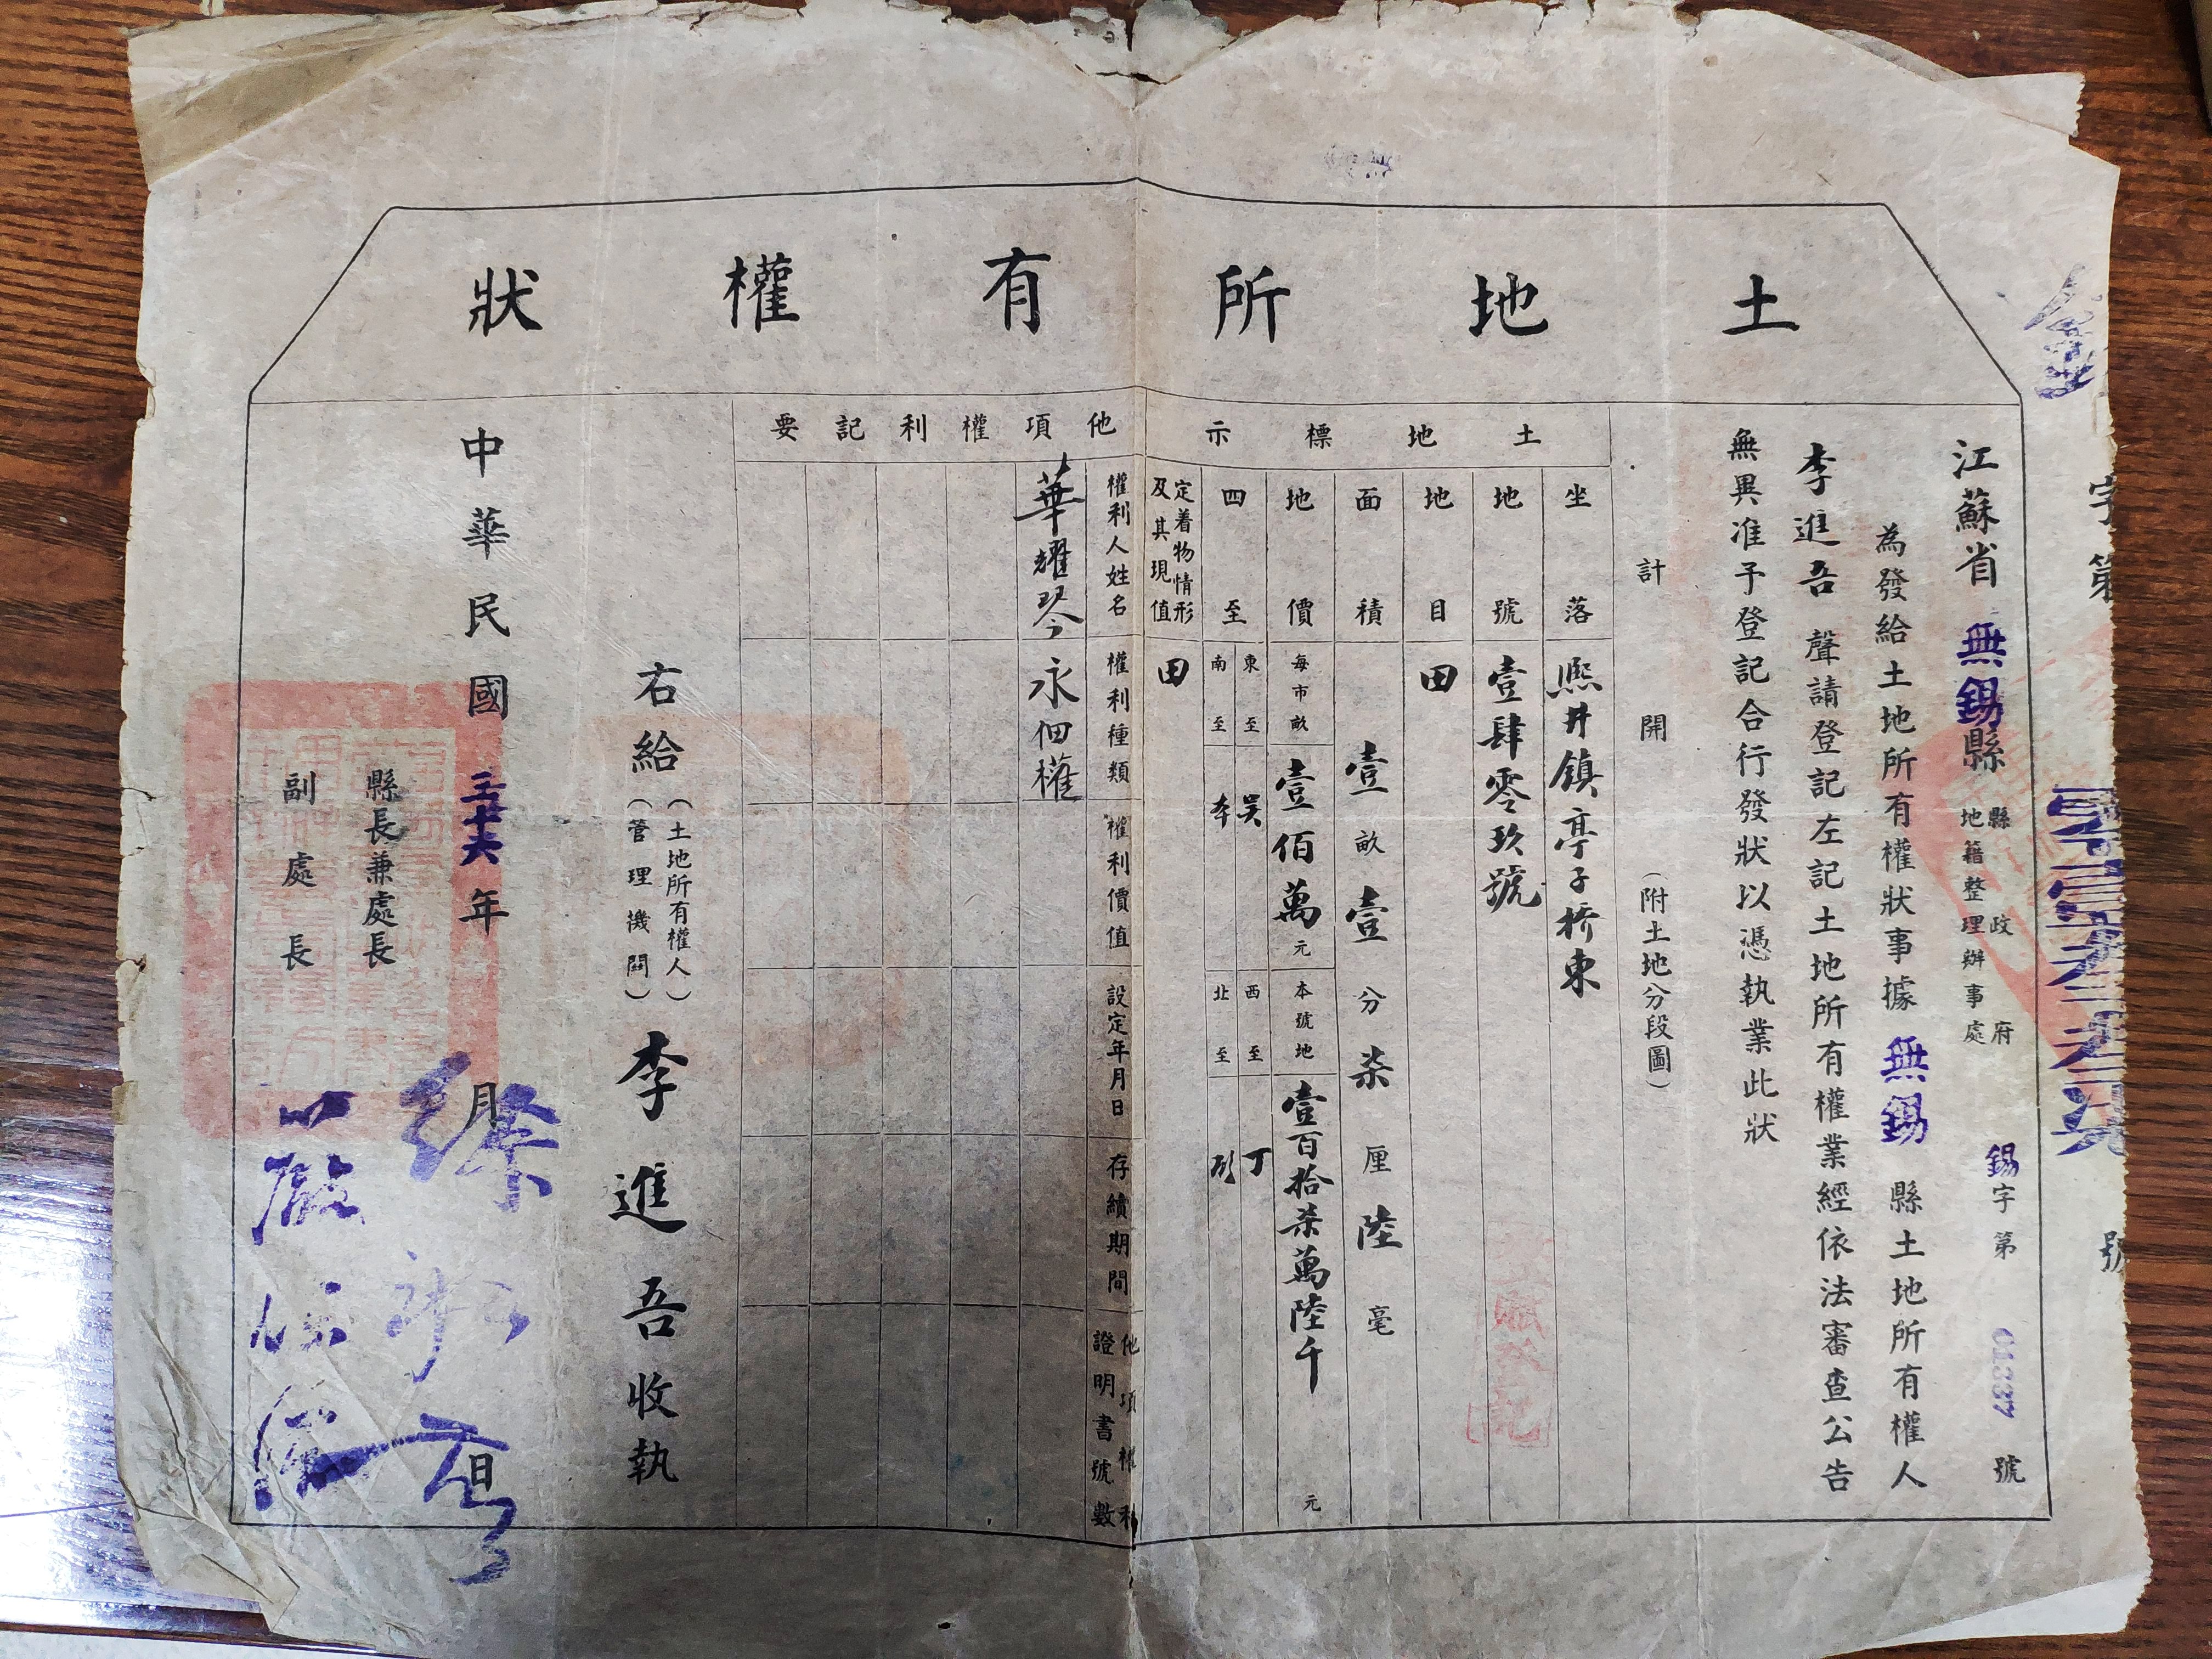 土地所有權狀
字第
號
江蘇省無錫縣
縣政府
地籍整理辦事處
錫字第01337號
為發給土地所有權狀事據無錫縣土地所有權人
李進吾聲請登記左記土地所有權業經依法審查公告
無異准予登記合行發狀以憑執業此狀
計開(附土地分段圖)
土地標示
坐落 熙井鎮亭子橋東
地號 壹肆零玖號
地目 田
面積 壹畝壹分柒厘陸毫
地價 每市畝 壹佰萬元 本號地 壹百拾柒萬陸千元
四至 東至 吳 西至 丁
南至 本 北至 彭
定着物情形
及其現值
田
他項權利記要
權利人姓名 權利種類 權利價值 設定年月日 存續期間 他項權利
證明書號數
華耀琴 永佃權
右給(土地所有權人)
(管理機關)
李進吾收執
中華民國三十六年月日
縣長兼處長
副處長